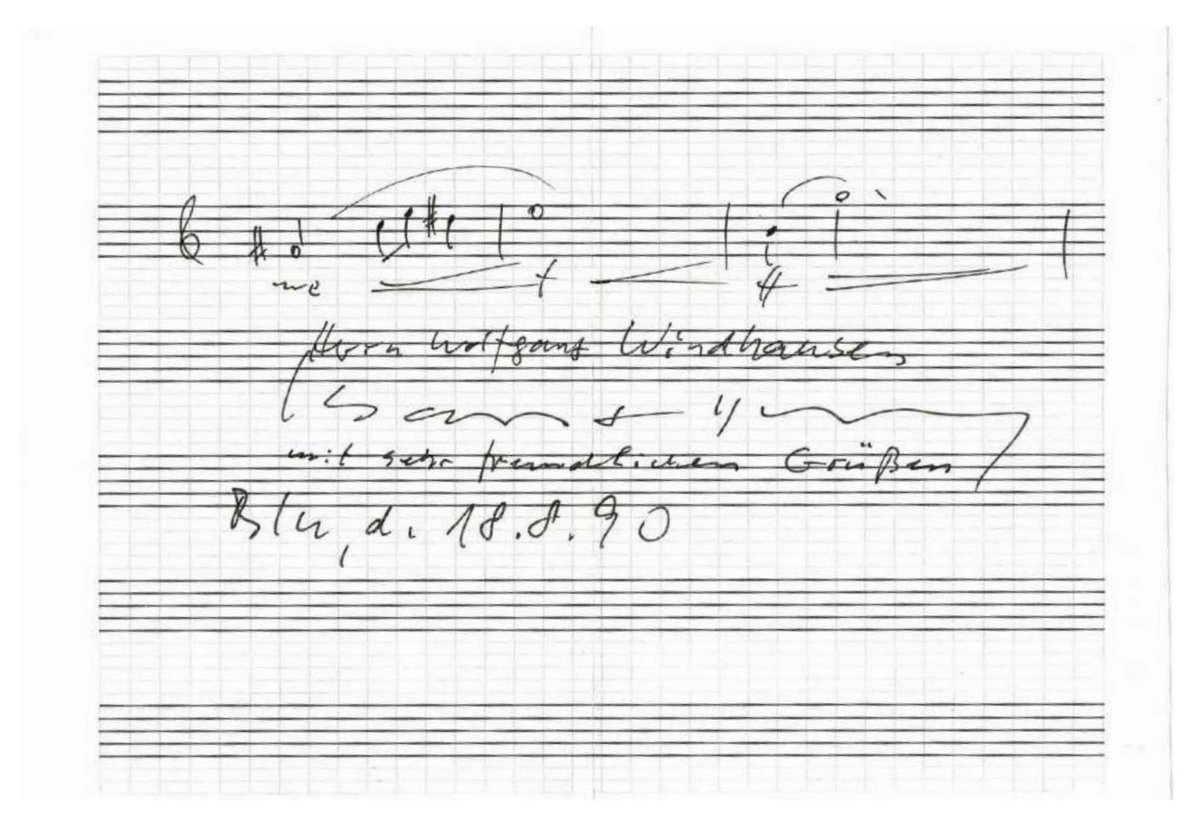 Herrn Wolfgang Windhausen
mit sehr freundlichen Grüßen
Bln, d. 18.8.90